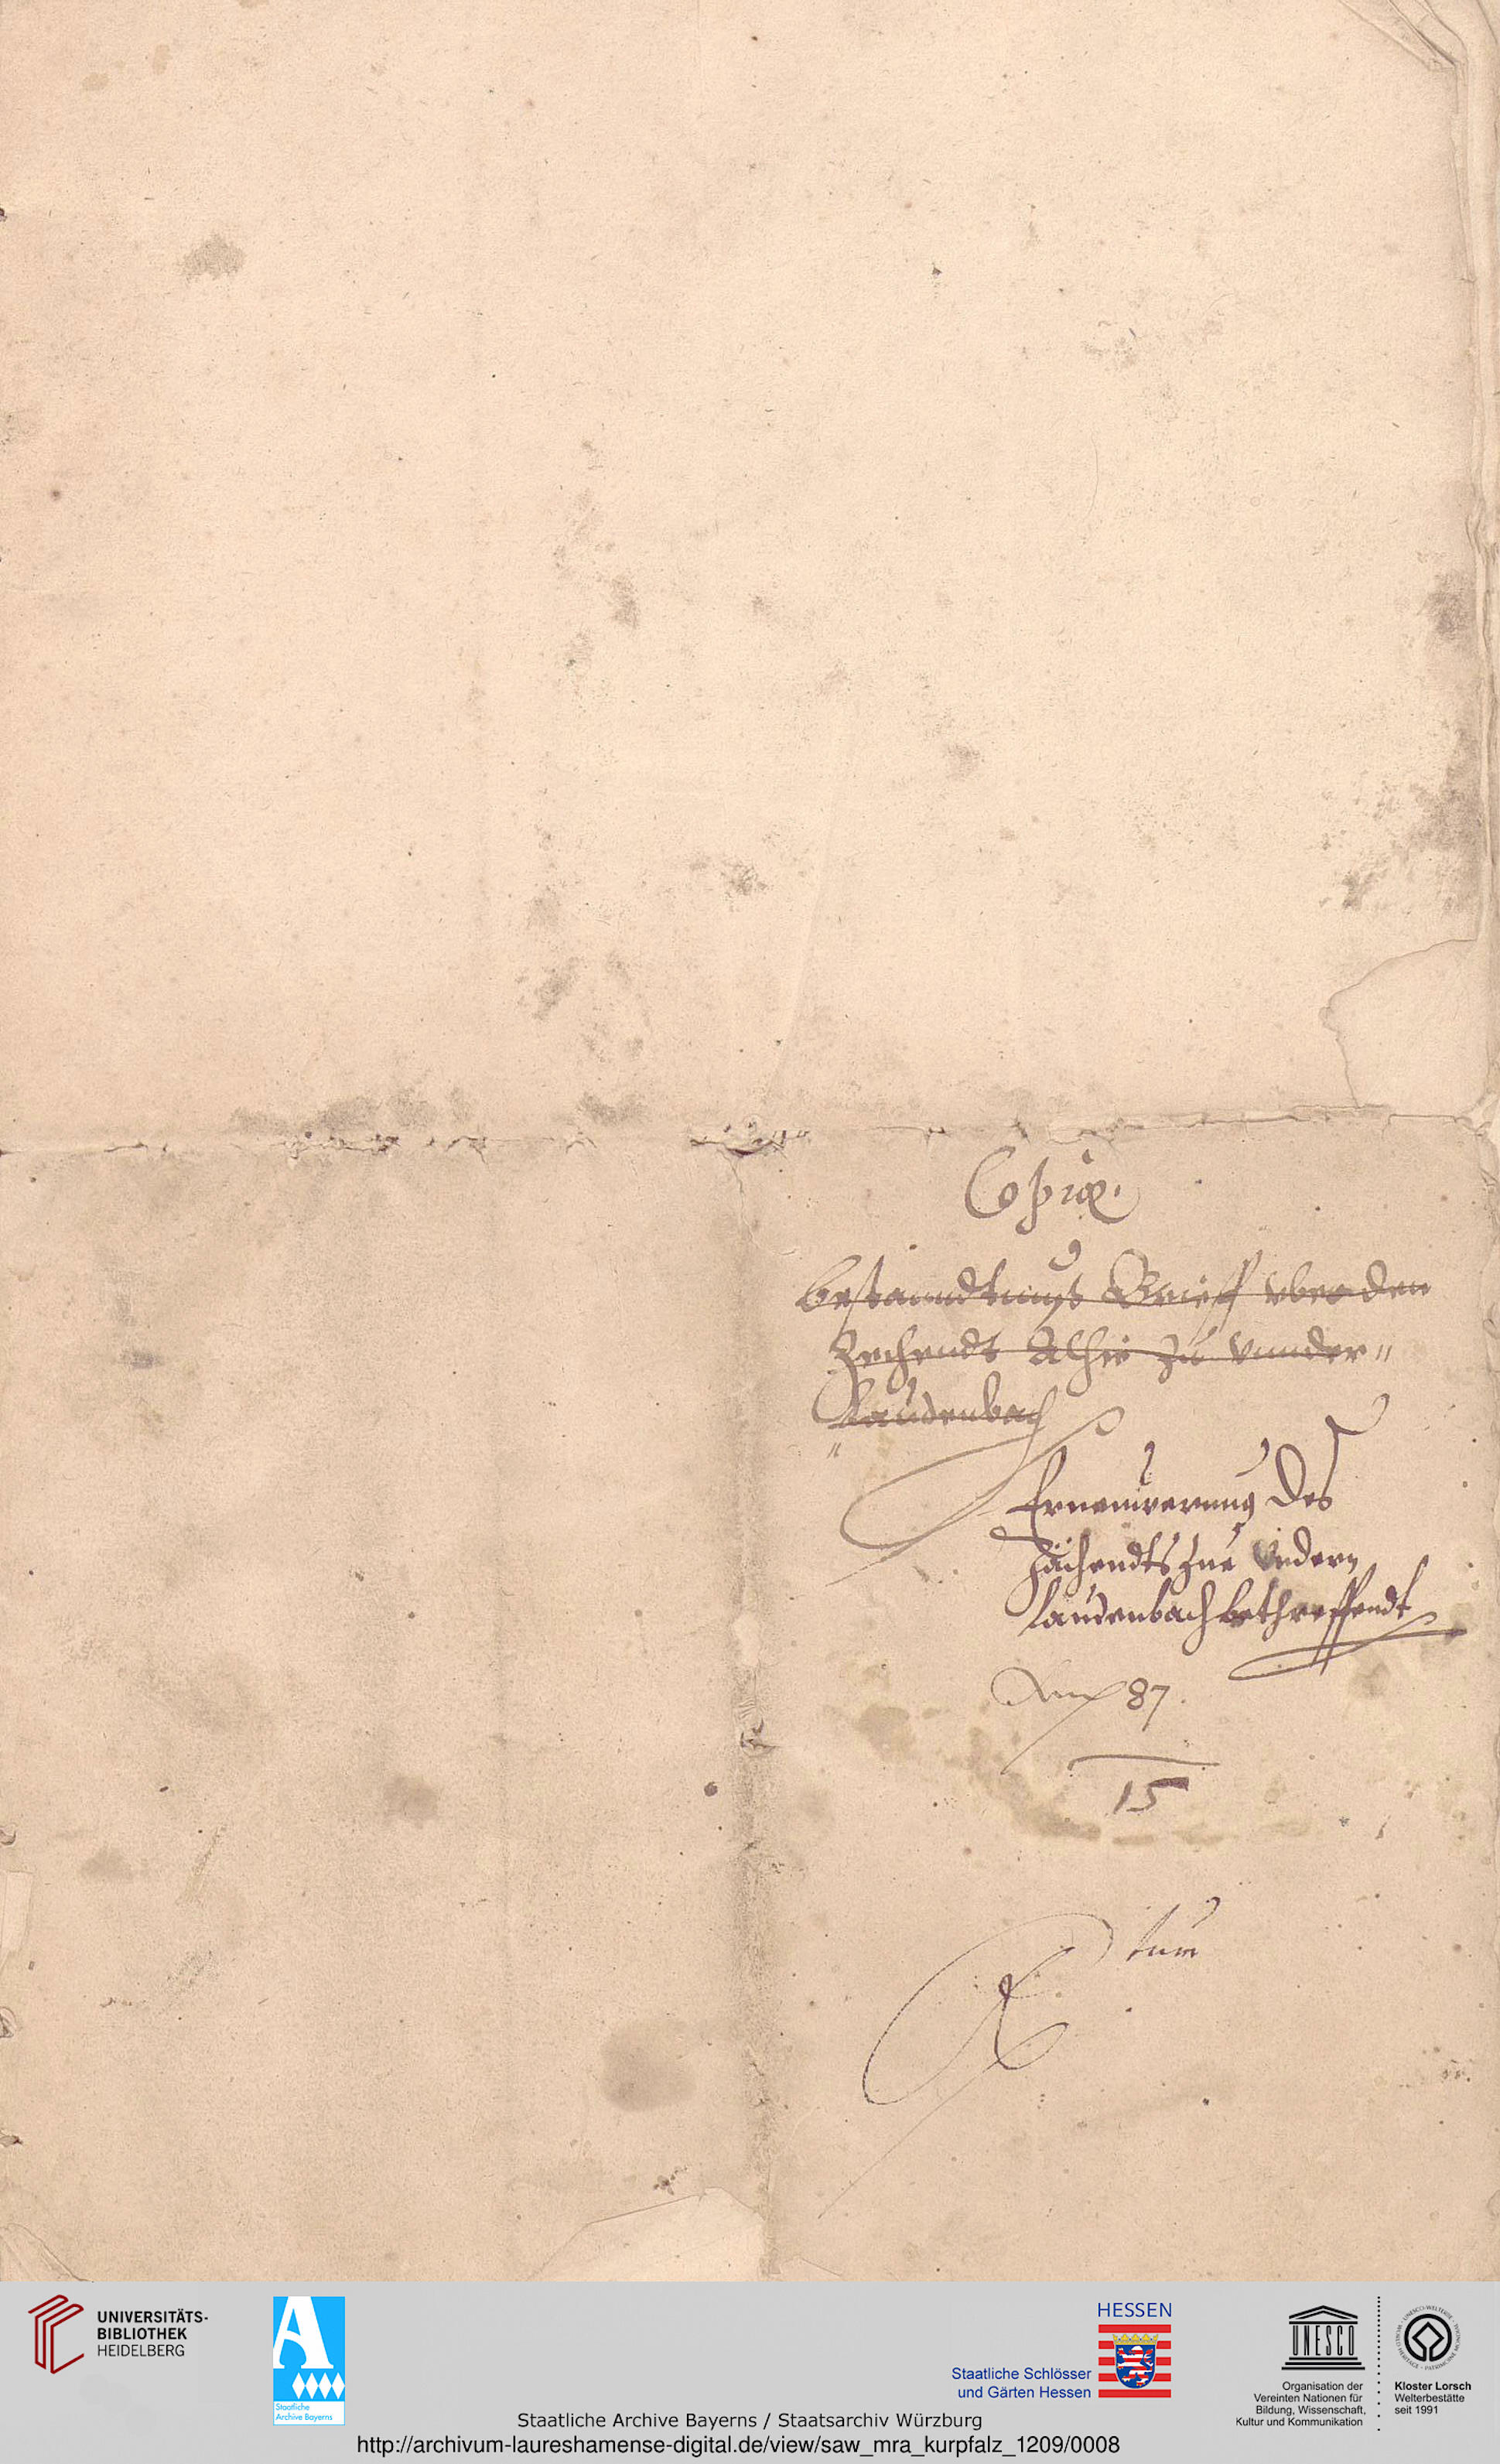 Copiæ.
Bestanndtnus Brieff vber den
Zechendt Alhie zu Vnnder"
"Laudenbach
Erneuwerung des
Zächendts zue Vndern
Laudenbach bethreffendt
87.
15
tum
UNIVERSITÄTS-
BIBLIOTHEK
HEIDELBERG
Staatliche
Archive Bayerns
HESSEN
Staatliche Schlösser
und Gärten Hessen
UNESCO
Organisation der
Vereinten Nationen für
Bildung, Wissenschaft,
Kultur und Kommunikation
Kloster Lorsch
Welterbestätte
seit 1991
Staatliche Archive Bayerns / Staatsarchiv Würzburg
http://archivum-laureshamense-digital.de/view/saw_mra_kurpfalz_1209/0008